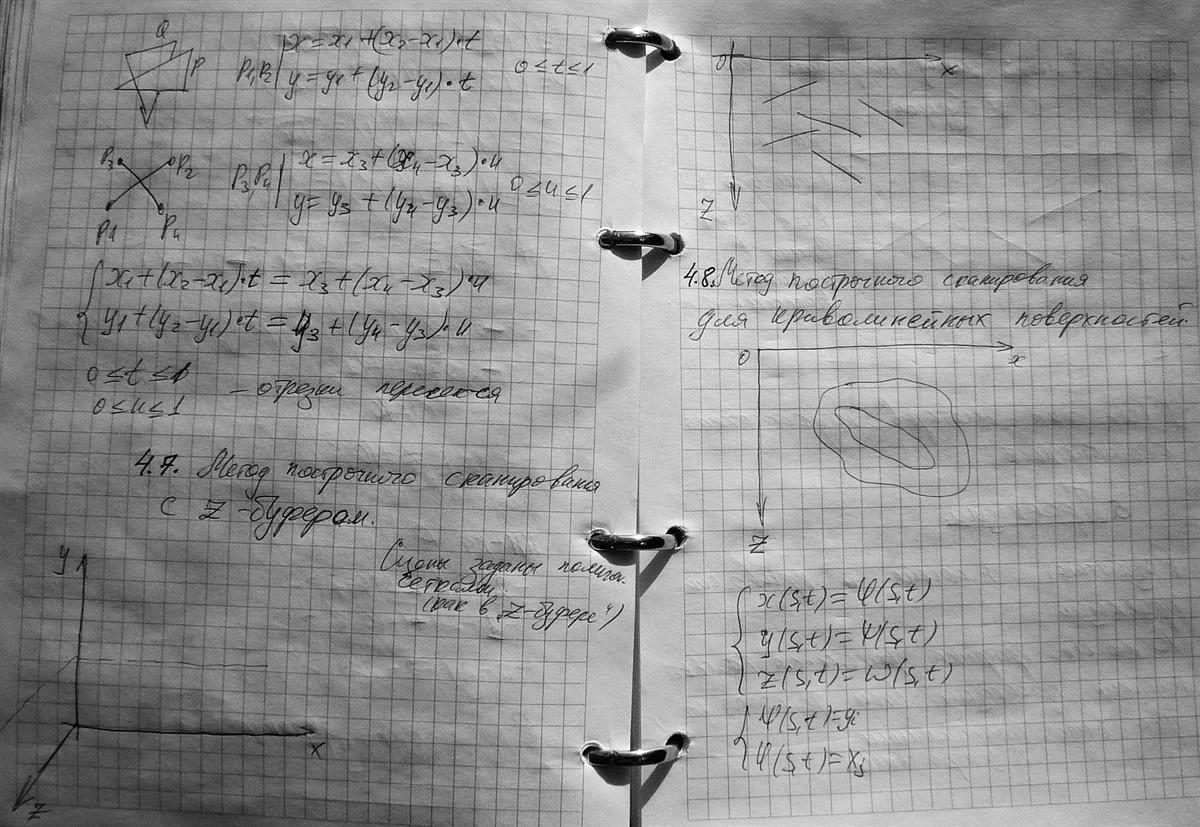 Q
P
P1,P2 | x = x1 + (x2 - x1)·t
y = y1 + (y2 - y1)·t
0 ≤ t ≤ 1
P3
P2
P1
P4
P3,P4 | x = x3 + (x4 - x3)·u
y = y3 + (y4 - y3)·u
0 ≤ u ≤ 1
{ x1 + (x2 - x1)·t = x3 + (x4 - x3)·u
y1 + (y2 - y1)·t = y3 + (y4 - y3)·u
0 ≤ t ≤ 1
0 ≤ u ≤ 1
– отрезки пересек-ся
4.7. Метод построчного сканирования
с Z-буфером.
Сцены заданы полигон.
сетками
(как в „Z-буфере“)
y
x
z
0
x
z
4.8. Метод построчного сканирования
для криволинейных поверхностей.
0
x
z
{ x(s,t) = φ(s,t)
y(s,t) = ψ(s,t)
z(s,t) = ω(s,t)
{ ψ(s,t) = yi
φ(s,t) = xj